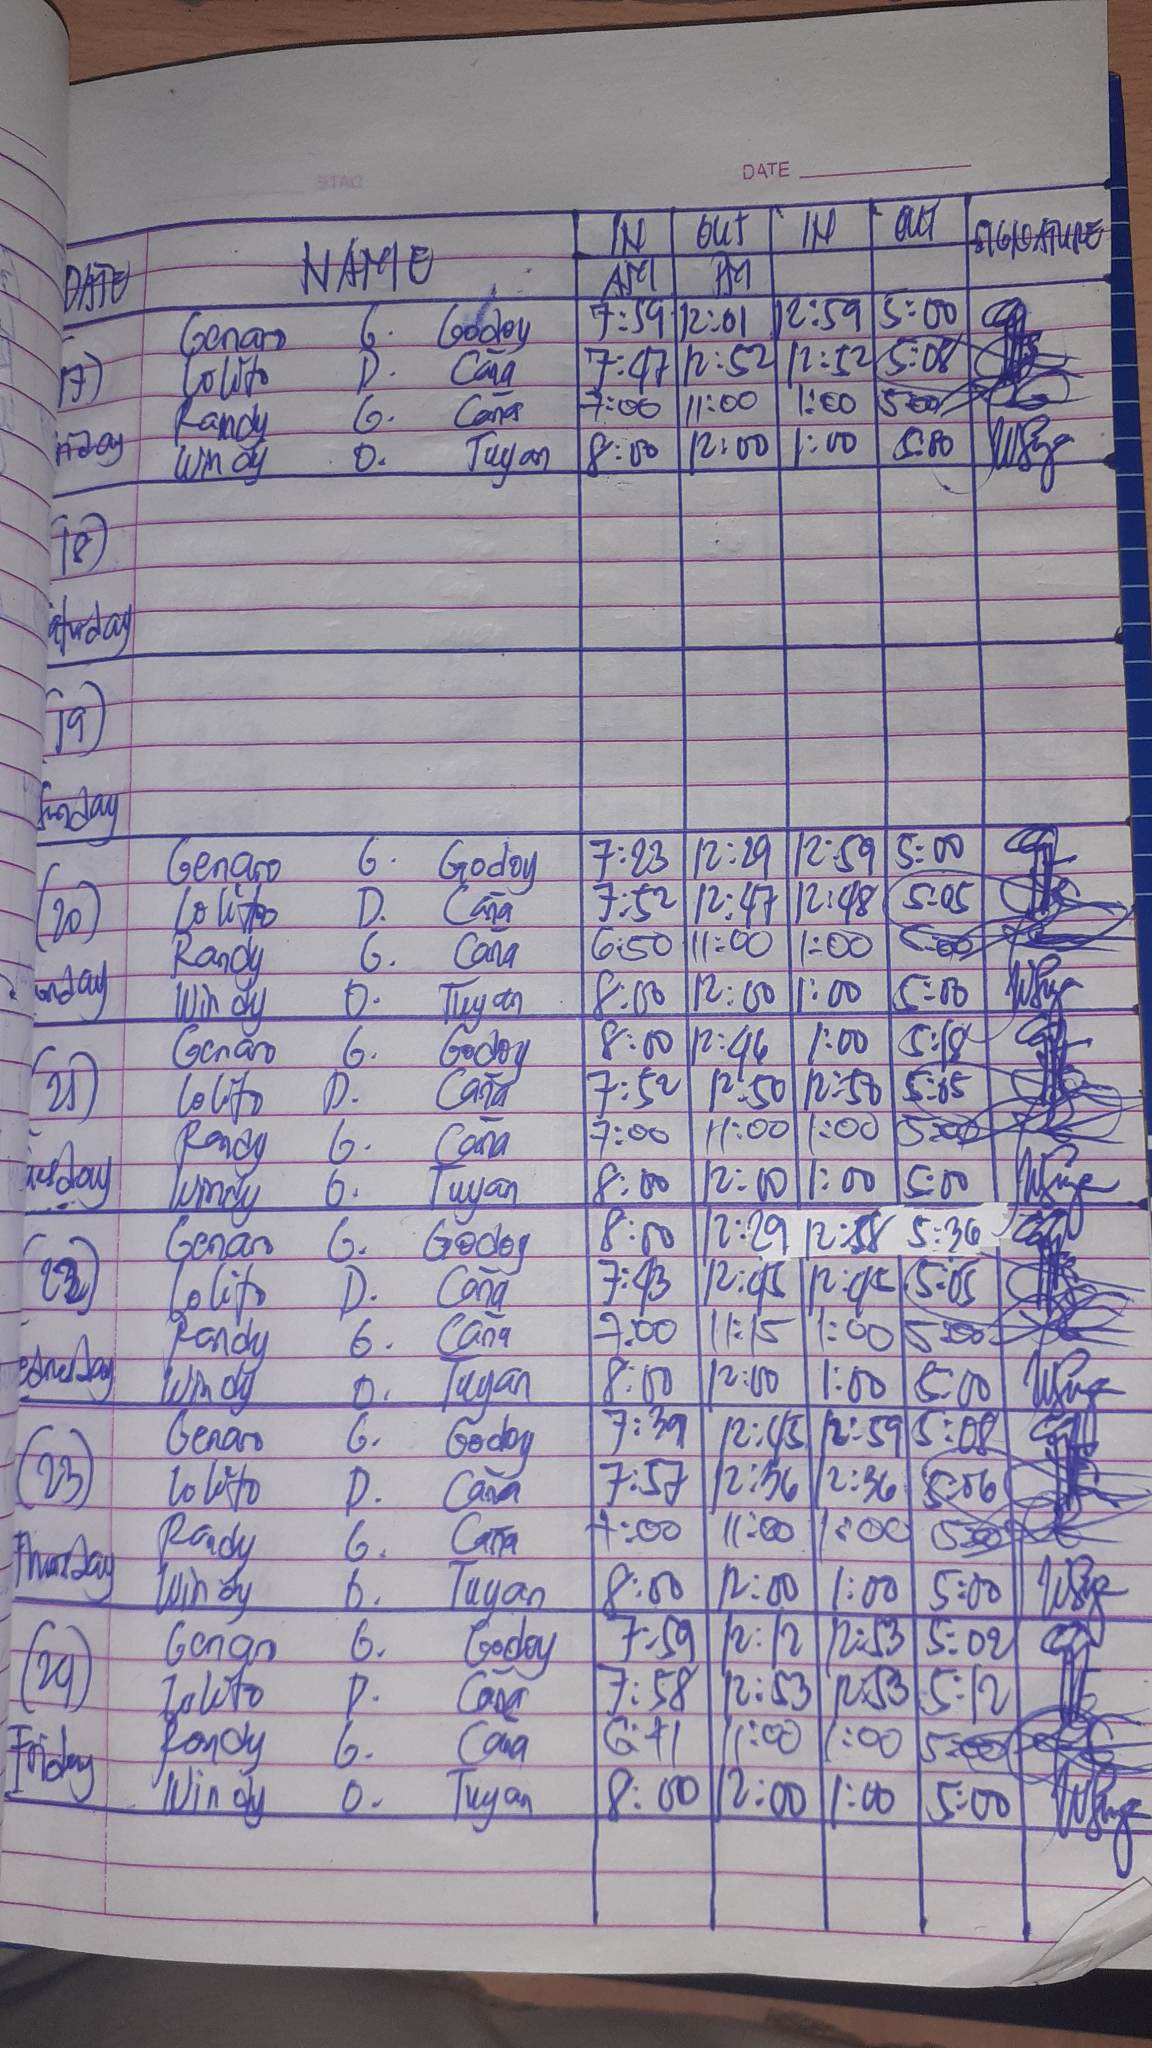 DATE
DATE NAME IN OUT IN OUT SIGNATURE
AM PM
Genaro G. Godoy 7:59 12:01 12:59 5:00
17) Lolito D. Caña 7:47 12:52 12:52 5:08
Randy G. Caña 7:00 11:00 1:00 5:00
Windy O. Tuyan 8:00 12:00 1:00 5:00
(18)
aturday
(19)
Sunday
Genaro G. Godoy 7:23 12:29 12:59 5:00
(20) Lolito D. Caña 7:52 12:47 12:48 5:05
Randy G. Caña 6:50 11:00 1:00 5:00
onday Windy O. Tuyan 8:00 12:00 1:00 5:00
Genaro G. Godoy 8:00 12:46 1:00 5:18
(21) Lolito D. Caña 7:52 12:50 12:50 5:05
Randy G. Caña 7:00 11:00 1:00 5:00
uesday Windy O. Tuyan 8:00 12:00 1:00 5:00
Genaro G. Godoy 8:00 12:29 12:58 5:36
(22) Lolito D. Caña 7:43 12:45 12:45 5:05
Randy G. Caña 7:00 11:15 1:00 5:00
ednesday Windy O. Tuyan 8:00 12:00 1:00 5:00
Genaro G. Godoy 7:39 12:45 12:59 5:08
(23) Lolito D. Caña 7:57 12:36 12:36 5:06
Randy G. Caña 7:00 11:00 1:00 5:00
Thursday Windy O. Tuyan 8:00 12:00 1:00 5:00
Genaro G. Godoy 7:59 12:12 12:53 5:02
(24) Lolito D. Caña 7:58 12:53 12:53 5:12
Randy G. Caña 11:00 1:00 5:00
Friday Windy O. Tuyan 8:00 12:00 1:00 5:00